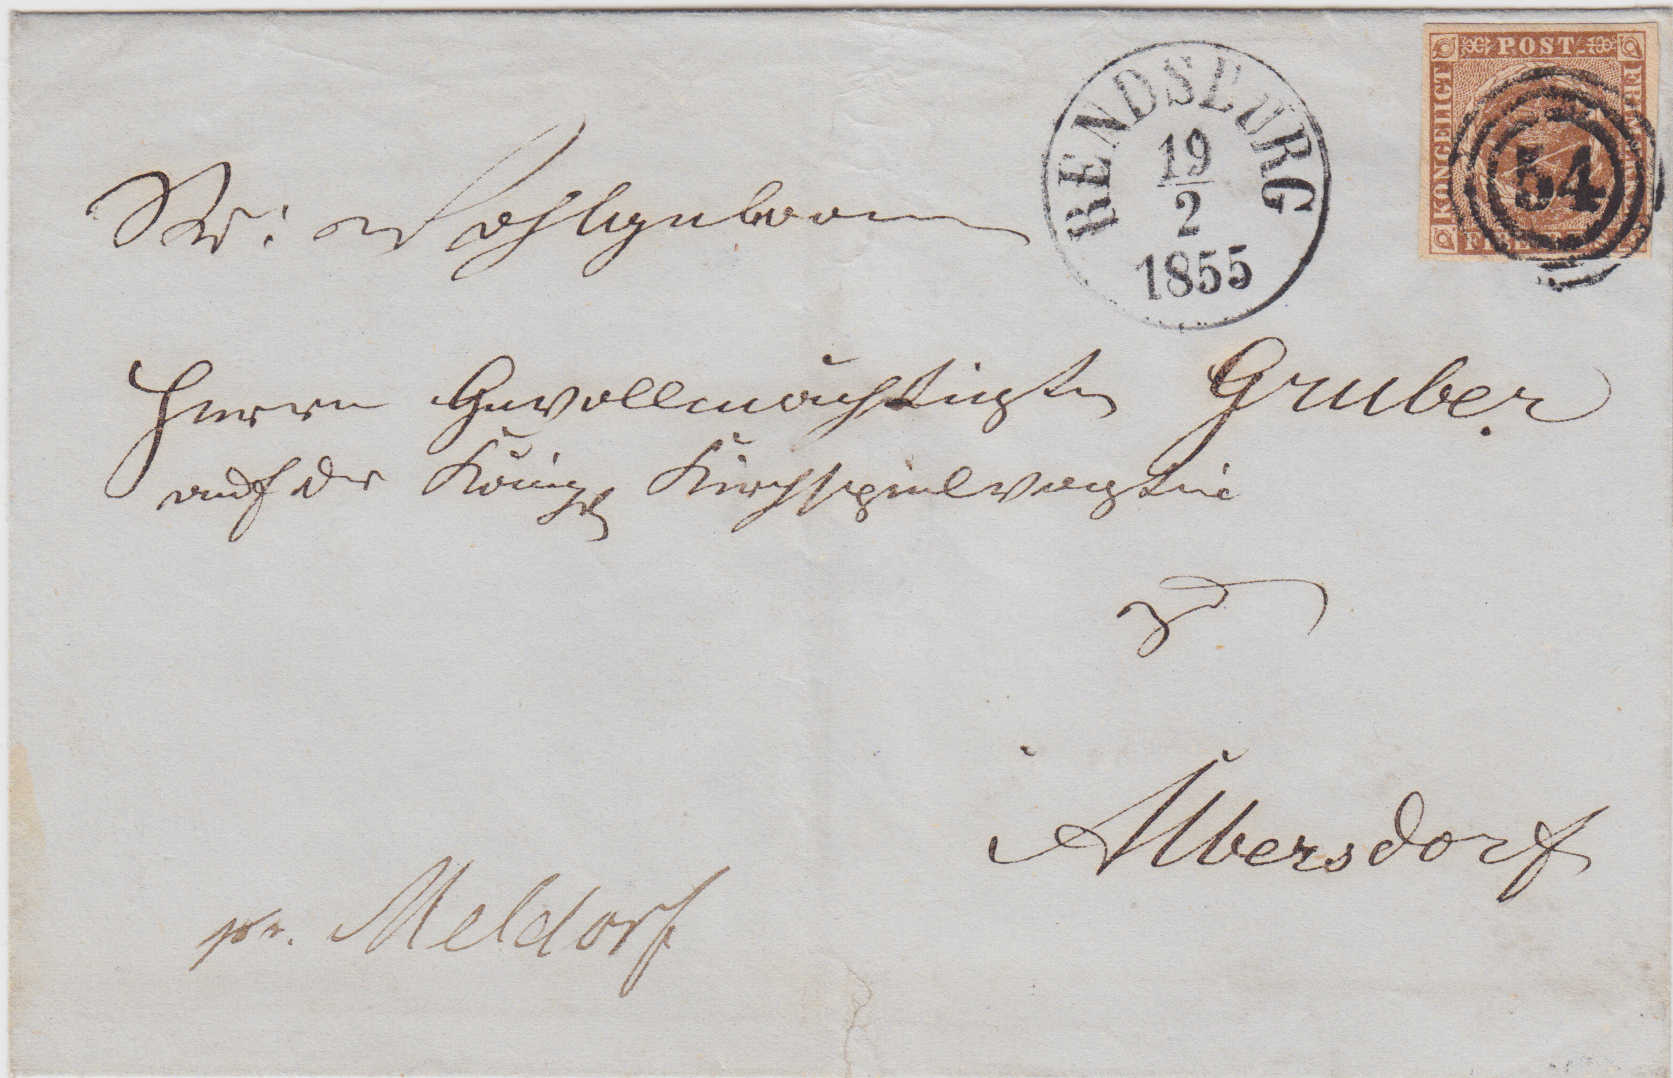 Sr: Wohlgeboren
RENDSBURG
19
2
1855
KONGELIGT POST FRIMÆRKE
54
Herrn Gevollmächtigten Gruber
auf der Königl Kirchspielvogtei
zu
Albersdorf
pr. Meldorf